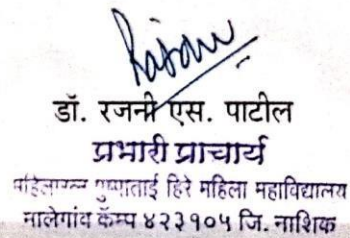 Rajani
डॉ. रजनी एस. पाटील
प्रभारी प्राचार्य
महिलारत्न पुष्पाताई हिरे महिला महाविद्यालय
मालेगांव कॅम्प ४२३१०५ जि. नाशिक